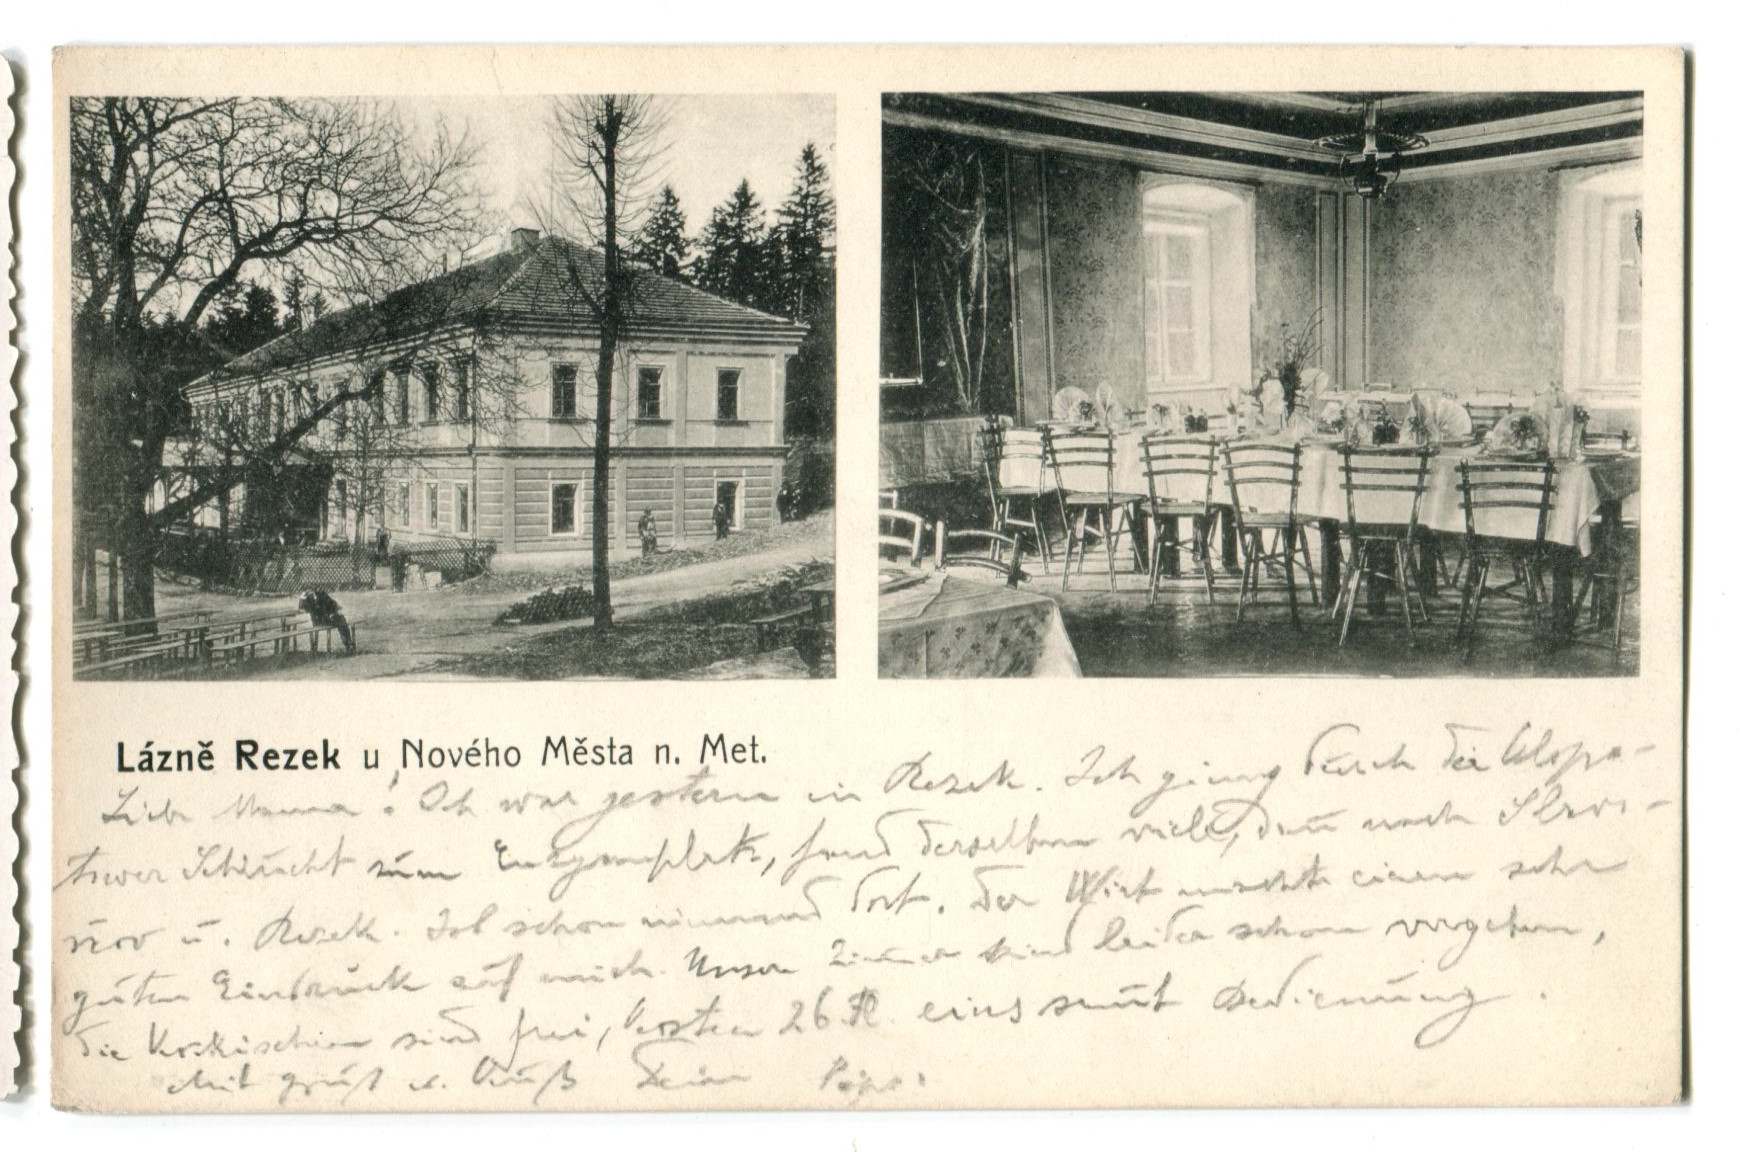 Lázně Rezek u Nového Města n. Met.
Liebe Mama! Ich war gestern in Rezek. Ich ging durch die Klopo-
tower Schlucht zum Enzymplatz, fand derselben viele, dann nach Slavo-
nov u. Rezek. Ist schon niemand dort. Der Wirt machte einen sehr
guten Eindruck auf mich. Unsere Zimmer sind leider schon vergeben,
die sind frei, kosten 26 K. eins samt Bedienung.
Mit Gruß u. Kuß Dein Papa.